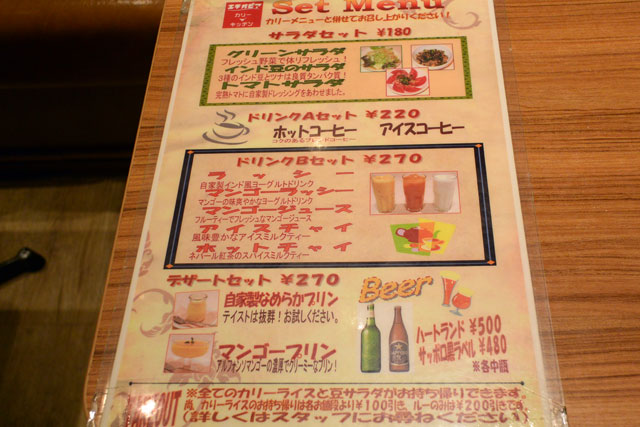 カリー
キッチン
Set Menu
カリーメニューと併せてお召し上がりください!
サラダセット ¥180
グリーンサラダ
フレッシュ野菜で体リフレッシュ!
インド豆のサラダ
3種のインド豆とツナは良質タンパク質!
トマトサラダ
完熟トマトに自家製ドレッシングをあわせました。
ドリンクAセット ¥220
ホットコーヒー アイスコーヒー
コクのあるブレンドコーヒー
ドリンクBセット ¥270
ラッシー
自家製インド風ヨーグルトドリンク
マンゴーラッシー
マンゴーの味爽やかなヨーグルトドリンク
マンゴージュース
フルーティーでフレッシュなマンゴージュース
アイスチャイ
風味豊かなアイスミルクティー
ホットチャイ
ネパール紅茶のスパイスミルクティー
デザートセット ¥270
自家製なめらかプリン
テイストは抜群!お試しください。
マンゴープリン
アルフォンソマンゴーの濃厚でクリーミーなプリン!
Beer
ハートランド ¥500
サッポロ黒ラベル ¥480
※各中瓶
TAKEOUT
※全てのカリーライスと豆サラダがお持ち帰りできます。
尚、カリーライスのお持ち帰りは各お値段より¥100引き、ルーのみは¥200引きです。
(詳しくはスタッフにお尋ねください)